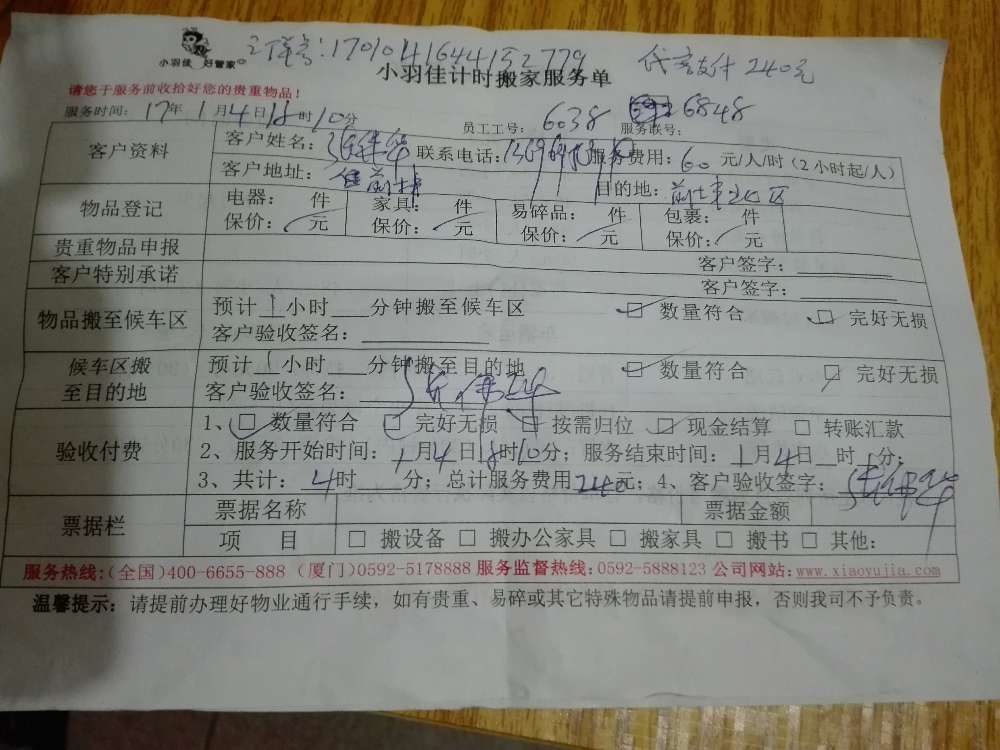 小羽佳 好管家
订单号：170104164415 2779
小羽佳计时搬家服务单
代客支付 240元
请您于服务前收拾好您的贵重物品！
服务时间：17年1月4日18时10分 员工工号：6038 服务联号：6848
客户资料 客户姓名： 联系电话： 服务费用：60元/人/时（2小时起/人）
客户地址： 前埔 目的地：前埔北区
物品登记 电器： 件 家具： 件 易碎品： 件 包裹： 件
保价： 元 保价： 元 保价： 元 保价： 元
贵重物品申报 客户签字：
客户特别承诺 客户签字：
物品搬至候车区 预计1小时 分钟搬至候车区 数量符合 完好无损
客户验收签名：
候车区搬至目的地 预计1小时 分钟搬至目的地 数量符合 完好无损
客户验收签名：
验收付费 1、数量符合 完好无损 按需归位 现金结算 转账汇款
2、服务开始时间：1月4日18时10分；服务结束时间：1月4日 时 分；
3、共计：4时 分；总计服务费用240元；4、客户验收签字：
票据栏 票据名称 票据金额
项 目 搬设备 搬办公家具 搬家具 搬书 其他：
服务热线:(全国)400-6655-888 (厦门)0592-5178888 服务监督热线:0592-5888123 公司网站:www.xiaoyujia.com
温馨提示：请提前办理好物业通行手续，如有贵重、易碎或其它特殊物品请提前申报，否则我司不予负责。